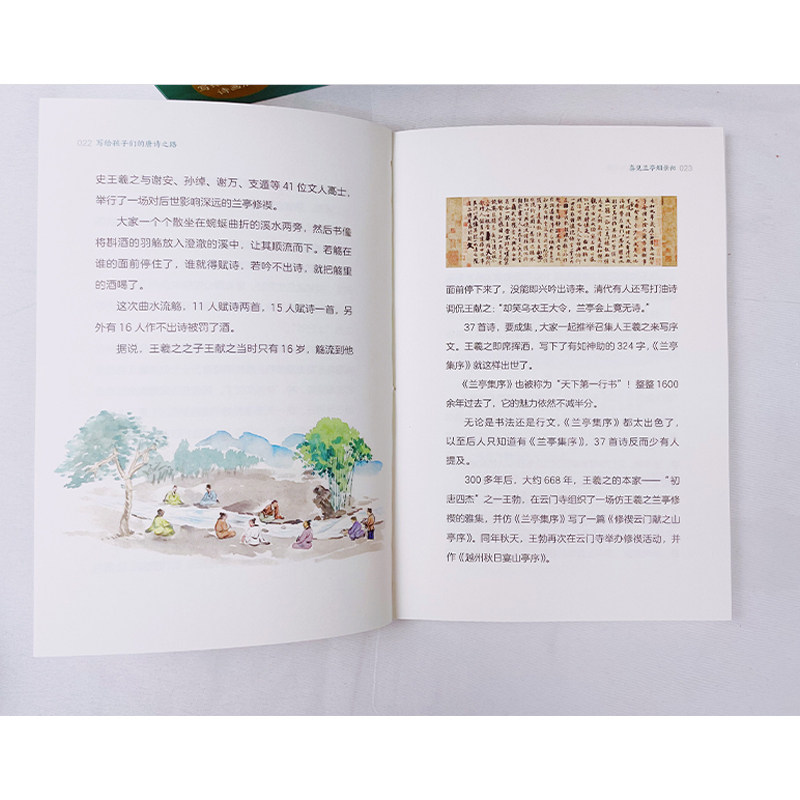 022 写给孩子们的唐诗之路
史王羲之与谢安、孙绰、谢万、支遁等 41 位文人高士，
举行了一场对后世影响深远的兰亭修禊。
大家一个个散坐在蜿蜒曲折的溪水两旁，然后书僮
将斟酒的羽觞放入澄澈的溪中，让其顺流而下。若觞在
谁的面前停住了，谁就得赋诗，若吟不出诗，就把觞里
的酒喝了。
这次曲水流觞，11 人赋诗两首，15 人赋诗一首，另
外有 16 人作不出诗被罚了酒。
据说，王羲之之子王献之当时只有 16 岁，觞流到他
023
面前停下来了，没能即兴吟出诗来。清代有人还写打油诗
调侃王献之：“却笑乌衣王大令，兰亭会上竟无诗。”
37 首诗，要成集，大家一起推举召集人王羲之来写序
文。王羲之即席挥洒，写下了有如神助的 324 字，《兰亭
集序》就这样出世了。
《兰亭集序》也被称为“天下第一行书”！整整 1600
余年过去了，它的魅力依然不减半分。
无论是书法还是行文，《兰亭集序》都太出色了，
以至后人只知道有《兰亭集序》，37 首诗反而少有人
提及。
300 多年后，大约 668 年，王羲之的本家——“初
唐四杰”之一王勃，在云门寺组织了一场仿王羲之兰亭修
禊的雅集，并仿《兰亭集序》写了一篇《修禊云门献之山
亭序》。同年秋天，王勃再次在云门寺举办修禊活动，并
作《越州秋日宴山亭序》。